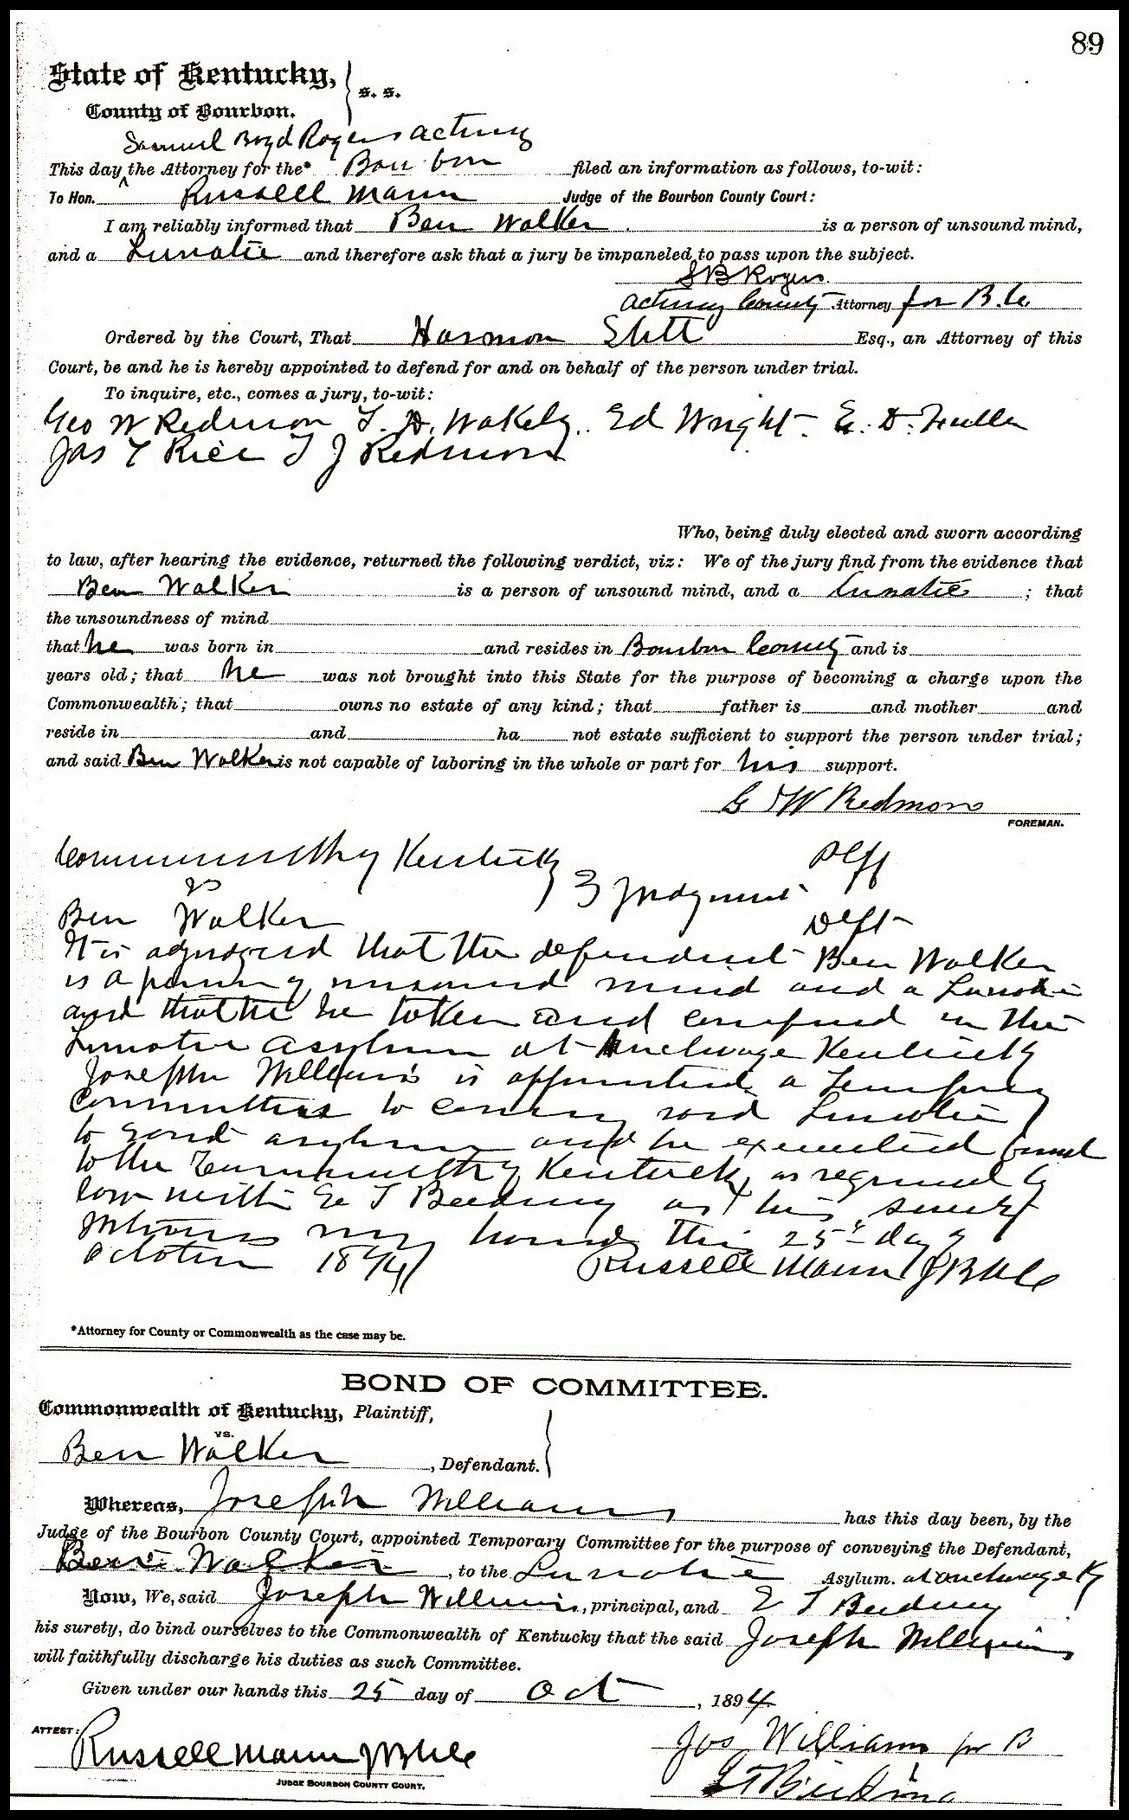 89
State of Kentucky,
County of Bourbon. } s. s.
Samuel Boyd Rogers acting
This day ^ the Attorney for the* Bourbon filed an information as follows, to-wit:
To Hon. Russell Mann Judge of the Bourbon County Court:
I am reliably informed that Ben Walker is a person of unsound mind,
and a Lunatic and therefore ask that a jury be impaneled to pass upon the subject.
S B Rogers
acting County Attorney for B. C.
Ordered by the Court, That Harmon Stitt Esq., an Attorney of this
Court, be and he is hereby appointed to defend for and on behalf of the person under trial.
To inquire, etc., comes a jury, to-wit:
Geo W Redmon T. D. Wakely. Ed Wright. E. D. Fuller
Jas T Rice T J Redmon
Who, being duly elected and sworn according
to law, after hearing the evidence, returned the following verdict, viz: We of the jury find from the evidence that
Ben Walker is a person of unsound mind, and a Lunatic ; that
the unsoundness of mind
that he was born in and resides in Bourbon County and is
years old; that he was not brought into this State for the purpose of becoming a charge upon the
Commonwealth; that owns no estate of any kind; that father is and mother and
reside in and ha not estate sufficient to support the person under trial;
and said Ben Walker is not capable of laboring in the whole or part for his support.
G W Redmon
FOREMAN.
Commonwealth of Kentucky Plff
vs } Judgment
Ben Walker Deft
It is adjudged that the defendant Ben Walker
is a person of unsound mind and a Lunatic
and that he be taken and confined in the
Lunatic Asylum at Anchorage Kentucky
Joseph Williams is appointed a Temporary
Committee to convey said Lunatic
to said asylum and he executed bond
to the Commonwealth of Kentucky as required by
law with E T Beeding as his surety
Witness my hand this 25th day of
October 1894 Russell Mann J B C C
*Attorney for County or Commonwealth as the case may be.
BOND OF COMMITTEE.
Commonwealth of Kentucky, Plaintiff,
vs.
Ben Walker , Defendant. }
Whereas, Joseph Williams has this day been, by the
Judge of the Bourbon County Court, appointed Temporary Committee for the purpose of conveying the Defendant,
Ben Walker , to the Lunatic Asylum. at Anchorage Ky
Now, We, said Joseph Williams, principal, and E T Beeding
his surety, do bind ourselves to the Commonwealth of Kentucky that the said Joseph Williams
will faithfully discharge his duties as such Committee.
Given under our hands this 25 day of Oct , 1894
ATTEST: Russell Mann J B C C
JUDGE BOURBON COUNTY COURT.
Jos Williams
E T Beeding